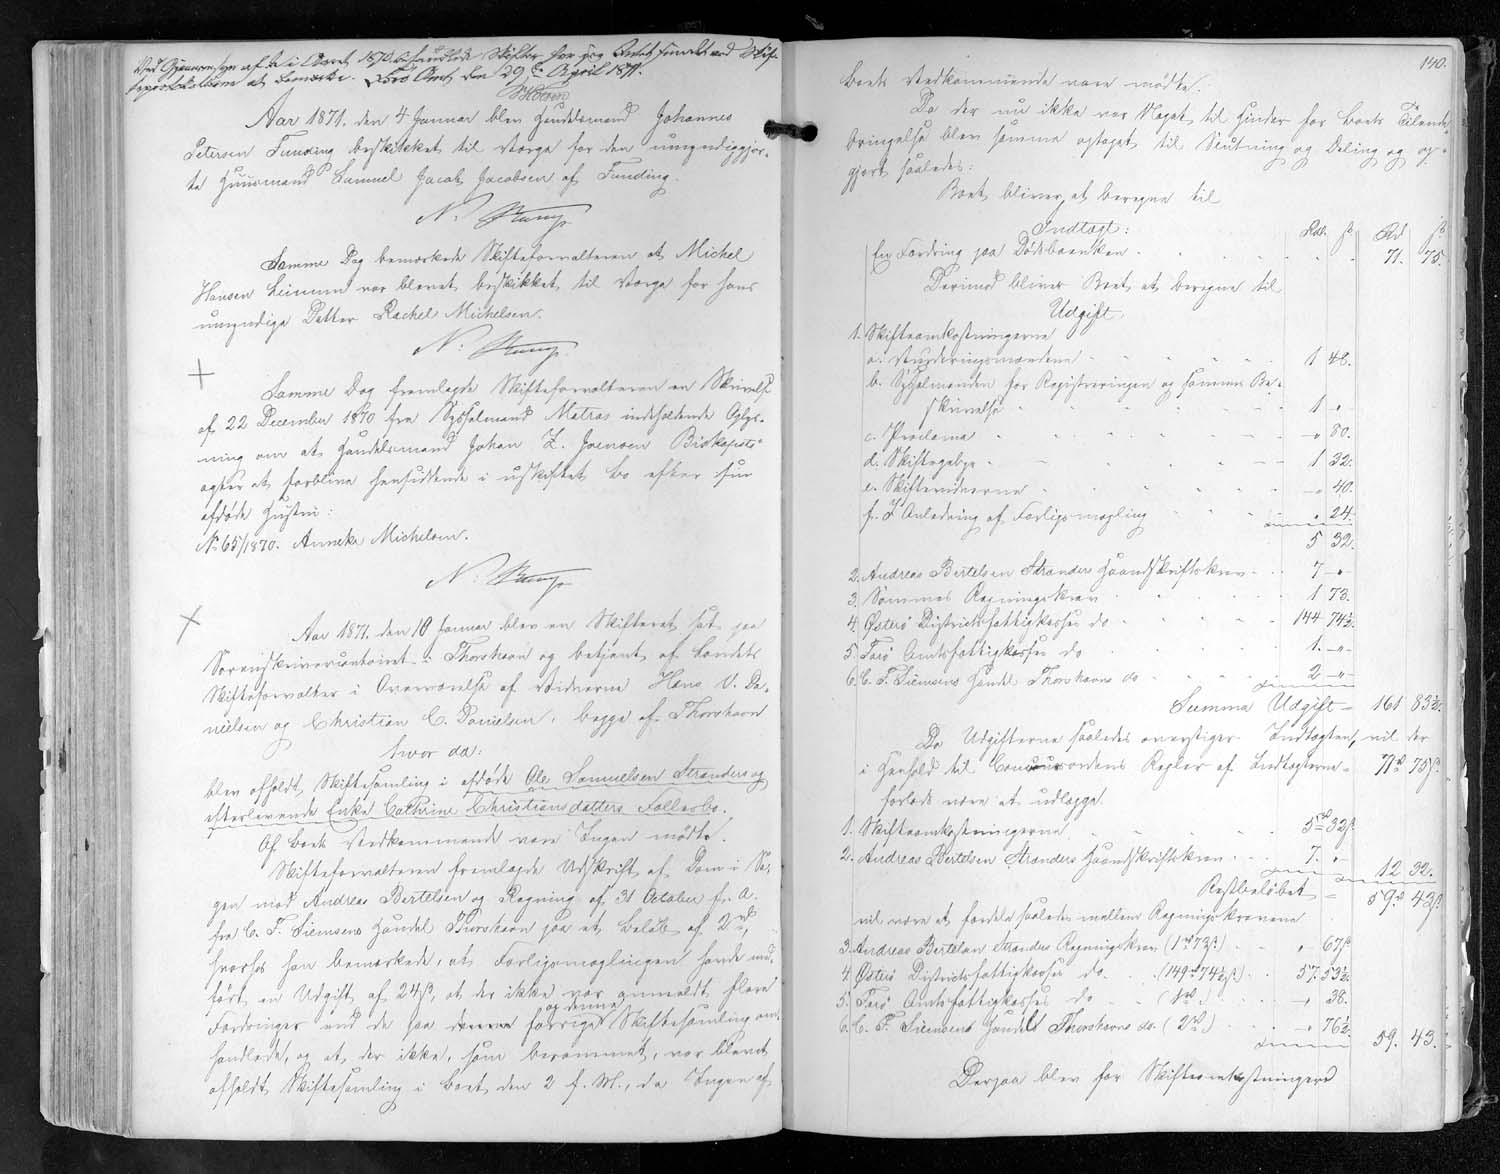 Ved Gjennemsyn af de i Aaret 1870 behandlede Skifter har jeg Intet fundet ved Skif-
teprotokollen at bemærke. Færø Amt den 29de April 1871.
Aar 1871. den 4 Januar blev Handelsmand Johannes
Petersen Funding beskikket til Værge for den umyndiggjor-
te Huusmand Samuel Jacob Jacobsen af Funding.
Samme Dag bemærkede Skifteforvalteren at Michel
Hansen Leinum var blevet beskikket til Værge for hans
umyndige Datter Rachel Michelsen.
Samme Dag fremlagde Skifteforvalteren en Skrivelse
af 22 December 1870 fra Sysselmand Matras indeholdende Oplys-
ning om at Handelsmand Johan Z. Joensen Biskopstø
agter at forblive hensiddende i uskiftet Bo efter sin
afdøde Hustru:
No 65/1870. Anneke Michelsen.
Aar 1871. den 10 Januar blev en Skifteret sat paa
Sorenskrivercontoiret i Thorshavn og betjent af Landets
Skifteforvalter i Overværelse af Vidnerne Hans V. Da-
nielsen og Christian C. Danielsen, begge af Thorshavn
hvor da:
blev afholdt Skiftesamling i afdøde Ole Samuelsen Stranders og
efterlevende Enke Cathrine Christiansdatters Fællesbo.
Af Boets Vedkommende vare Ingen mødte.
Skifteforvalteren fremlagde Udskrift af Dom i Sa-
gen mod Andreas Bertelsen og Regning af 31 October f. A.
fra C. F. Siemsens Handel Thorshavn paa et Beløb af 2 rd,
hvorhos han bemærkede, at Forligsmæglingen havde med-
ført en Udgift af 24 ß, at der ikke var anmeldt flere
Fordringer end de paa denne og forrige Skiftesamling om-
handlede, og at der ikke, som berammet, var blevet
afholdt Skiftesamling i Boet den 2 f. M., da Ingen af
140.
Boets Vedkommende vare mødte.
Da der nu ikke var Noget til Hinder for Boets Tilende-
bringelse blev samme optaget til Slutning og Deling og op-
gjort saaledes:
Boet bliver at beregne til
Indtægt: Rdl. ß Rd ß
En Fordring paa Dødsboenken 71. 75.
Derimod bliver Boet at beregne til
Udgift.
1. Skifteomkostningerne
a. Vurderingsmændene 1 48.
b. Sysselmanden for Registreringen og sammes Be-
skrivelse 1 "
c. Proclama " 80.
d. Skiftegebyr 1 32.
e. Skiftevidnerne " 40.
f. I Anledning af Forligsmægling " 24.
5 32.
2. Andreas Bertelsen Stranders Haandskriftskrav 7 "
3. Sammes Regningskrav 1 73.
4. Østerø Districtsfattigkasses do 144 74½
5. Færø Amtsfattigkasses do 1. "
6. C. F. Siemsens Handel Thorshavns do 2 "
Summa Udgift 161 83½.
Da Udgifterne saaledes overstiger Indtægten, vil der
i Henhold til Concursordens Regler af Indtægterne 71 rd 75 ß
forlods være at udlægge.
1. Skifteomkostningerne 5 rd 32 ß
2. Andreas Bertelsen Stranders Haandskriftskrav 7. " 12 32.
Restbeløbet 59 rd 43 ß
vil være at fordele saaledes mellem Regningskravene
3. Andreas Bertelsen Stranders Regningskrav (1 rd 73 ß) " 67 ß
4. Østerø Districtsfattigkasses do (149 rd 74½ ß) 57. 53½
5. Færø Amtsfattigkasses do (1 rd.) " 38.
6. C. F. Siemsens Handel Thorshavns do. (2 rd) " 76½
59. 43.
Derpaa blev for Skifteomkostningerne